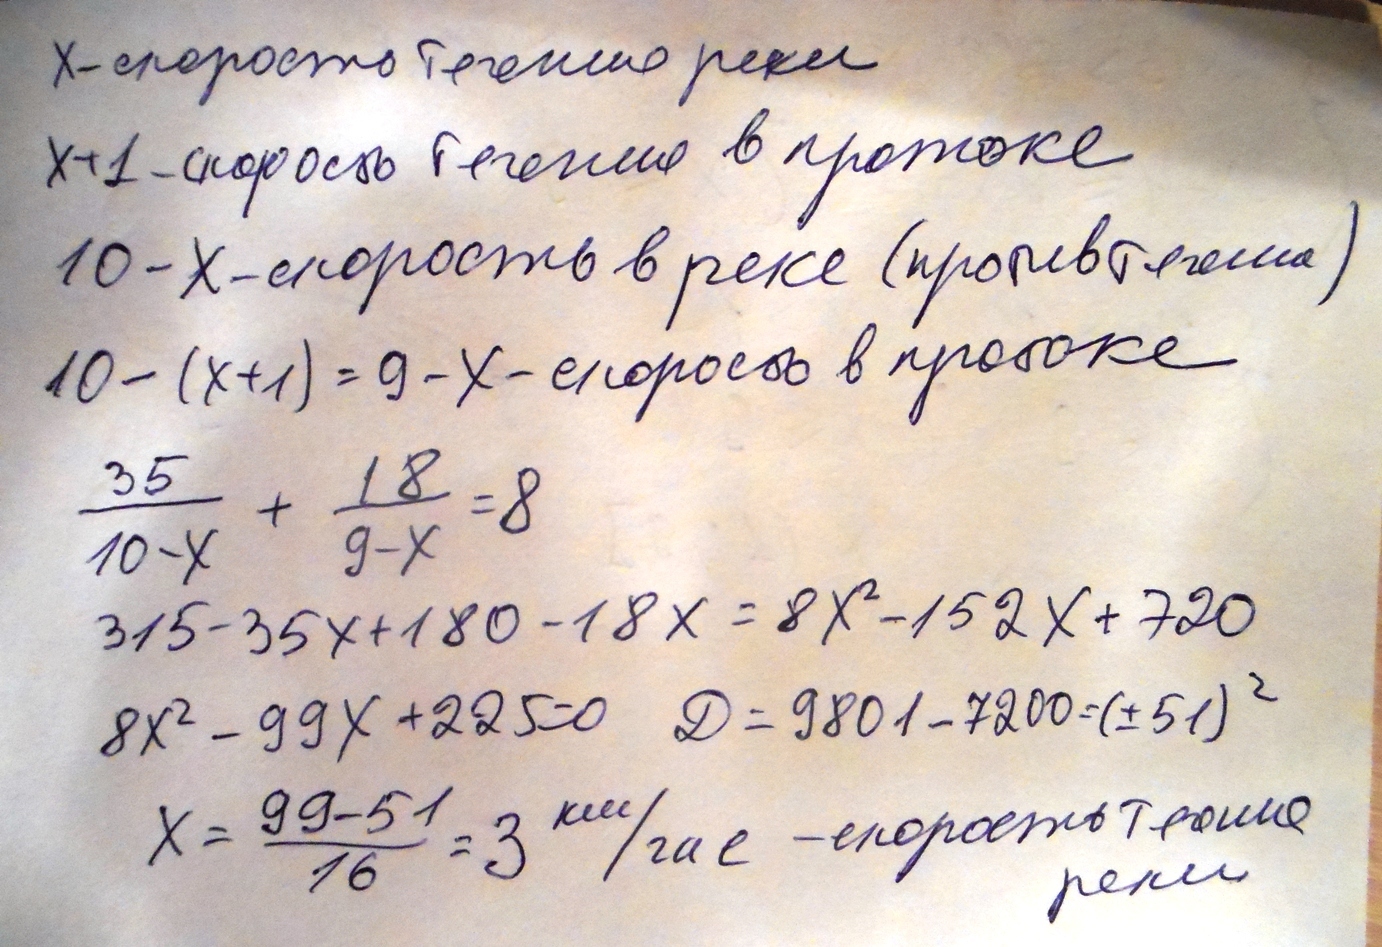 x - скорость течения реки
x+1 - скорость течения в протоке
10 - x - скорость в реке (против течения)
10 - (x+1) = 9 - x - скорость в протоке
35/(10-x) + 18/(9-x) = 8
315 - 35x + 180 - 18x = 8x² - 152x + 720
8x² - 99x + 225 = 0 D = 9801 - 7200 = (±51)²
x = (99-51)/16 = 3 км/час - скорость течения
реки